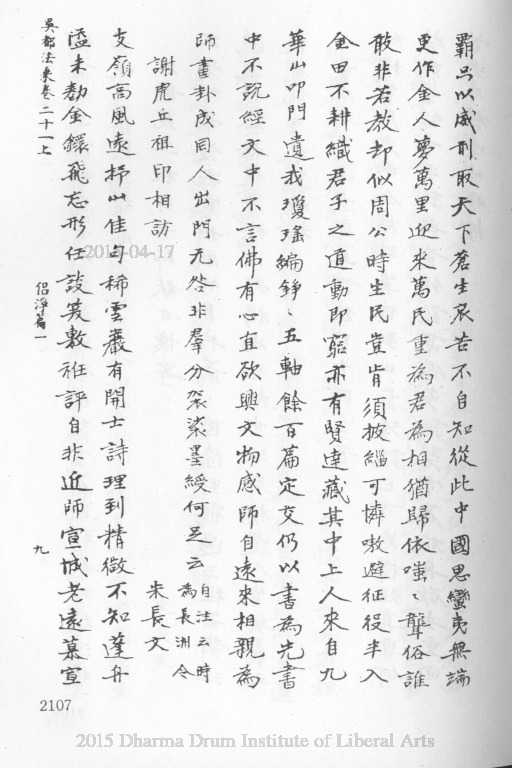 霸只以威刑取天下蒼生哀苦不自知從此中國思蠻夷無端
更作金人夢萬里迎來萬民重為君為相猶歸依嗤、聾俗誰
敢非若教却似周公時生民豈肯須披緇可憐嗷避征役半入
金田不耕織君子之道動即窮亦有賢達藏其中上人來自九
華山叩門遺我瓊瑤編錚、五軸餘百篇定交仍以書為先書
中不說經文中不言佛有心直欲興文物感師自遠來相親為
師畫卦成同人出門无咎非羣分袈裟墨綬何足云
自注云時
為長洲令
謝虎丘祖印相訪
朱長文
支嶺高風遠抒山佳句稀雲巖有開士詩理到精微不知蓬舟
溢未勌金鐶飛忘形任談笑敷衽評自非近師宣城老遠慕宣
吳都法乘卷二十一上
侣淨篇一
九
2107
2015-04-17
2015 Dharma Drum Institute of Liberal Arts